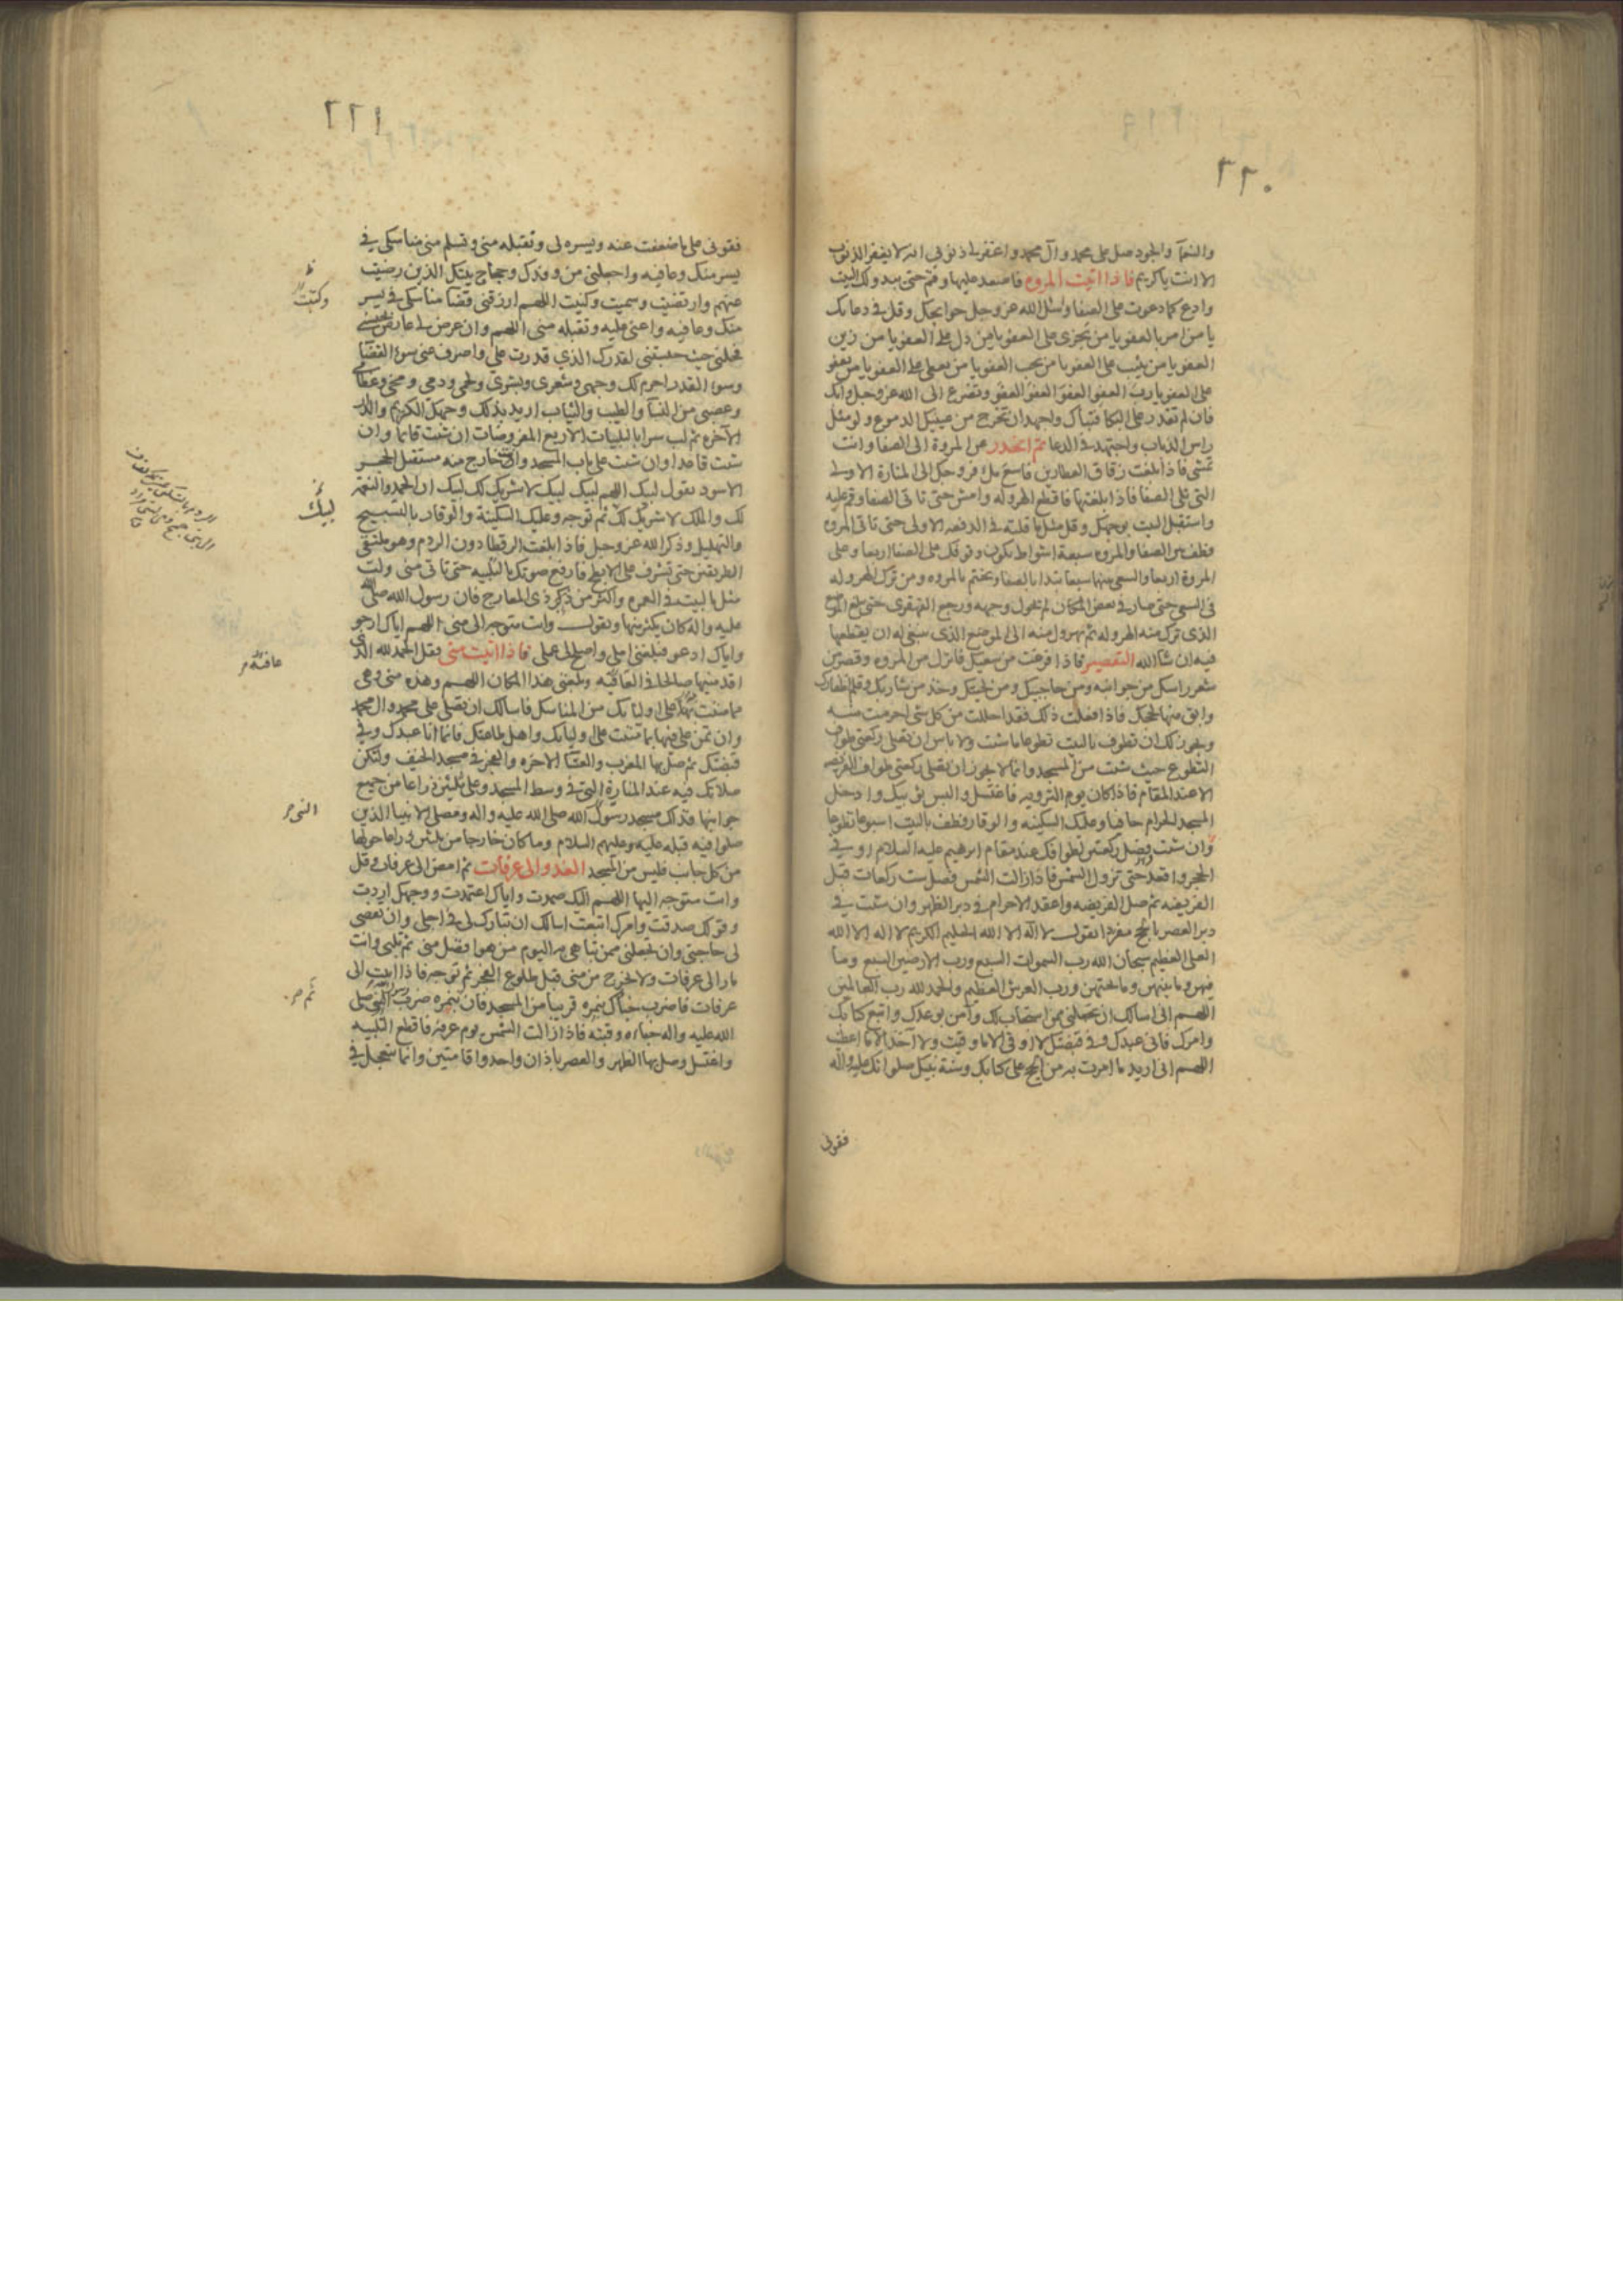 ٢٢٠
والنعمآ والجود صل على محمد وآل محمد واغفر لى ذنوبى انه لا يغفر الذنوب
الا انت ياكريم فاذا اتيت المروه فاصعد عليها وقم حتى يبدو لك البيت
وادع كما دعوت على الصفا وسئل الله عزوجل حوايجك وقل فى دعائك
يا من امر بالعفو يا من يجزى على العفو يا من دل على العفو يا من زين
العفو يا من يثيب على العفو يا من يحب العفو يا من يعطى على العفو يا من يعفو
على العفو يا رب العفو العفو العفو العفو وتضرع الى الله عزوجل وابك
فان لم تقدر على البكا فتباك واجهد ان تخرج من عينيك الدموع ولو مثل
راس الذباب واجتهد فى الدعا ثم انحدر عن المروة الى الصفا وانت
تمشى فاذا بلغت زقاق العطارين فاسع مل فروجك الى المنارة الاولى
التى تلى الصفا فاذا بلغتها فاقطع الهروله وامش حتى تاتى الصفا وقم عليه
واستقبل البيت بوجهك وقل مثل ما قلته فى الدفعه الاولى حتى تاتى المروه
وطف بين الصفا والمروه سبعة اشواط يكون وقوفك على الصفا اربعا وعلى
المروة اربعا والسعى بينهما سبعا تبدا بالصفا وتختم بالمروه ومن ترك الهروله
فى السعى حتى صار فى بعض المكان لم يحول وجهه ورجع القهقرى حتى يبلغ الموضع
الذى ترك منه الهروله ثم يهرول منه الى الموضع الذى ينبغى له ان يقطعها
فيه ان شاالله التقصير فاذا فرغت من سعيك فانزل من المروه وقصر من
شعر راسك من جوانبه ومن حاجبيك ومن لحيتك وخذ من شاربك وقلم اظفارك
وابق منها لحجك فاذا فعلت ذلك فقد احللت من كل شى احرمت منه
ويجوز لك ان تطوف بالبيت تطوعا ما شئت ولا باس ان تصلى ركعتى طواف
التطوع حيث شئت من المسجد وانما لا يجوز ان يصلى ركعتى طواف الفريضه
الا عند المقام فاذا كان يوم الترويه فاغتسل والبس ثوبيك وادخل
المسجد الحرام حافيا وعليك السكينه والوقار وطف بالبيت اسبوعا تطوعا
وان شئت وصل ركعتين لطوافك عند مقام ابرهيم عليه السلام او فى
الحجر واقعد حتى تزول الشمس فاذا زالت الشمس فصل ست ركعات قبل
الفريضه ثم صل الفريضه واعقد الاحرام فى دبر الظهر وان شئت فى
دبر العصر بالحج مفردا تقول لا اله الا الله الحليم الكريم لا اله الا الله
العلى العظيم سبحان الله رب السموات السبع ورب الارضين السبع وما
فيهن وما بينهن وما تحتهن ورب العرش العظيم والحمد لله رب العالمين
اللهم انى اسالك ان تجعلنى ممن استجاب لك وآمن بوعدك واتبع كتابك
وامرك فانى عبدك وفى قبضتك لا اوقى الا ما وقيت ولا آخذ الا ما اعطيت
اللهم انى اريد ما امرت به من الحج على كتابك وسنة نبيك صلواتك عليه وآله
فقونى
٢٢١
فقونى على ما ضعفت عنه ويسره لى وتقبله منى وتسلم منى مناسكى فى
يسر منك وعافيه واجعلنى من وفدك وحجاج بيتك الذين رضيت
عنهم وارتضيت وسميت وكنيت اللهم ارزقنى قضا مناسكى فى يسر
منك وعافيه واعنى عليه وتقبله منى اللهم وان عرض لى عارض يحبسنى
فحلنى حيث حبستنى لقدرك الذي قدرت على واصرف عنى سوء القضا
وسوء القدر احرم لك وجهى وشعرى وبشرى ولحمى ودمى ومخى وعظامى
وعصبى من النسآ والطيب والثياب اريد بذلك وجهك الكريم والدار
الآخره ثم لب سرا بالتلبيات الاربع المفروضات ان شئت قائما وان
شئت قاعدا وان شئت على باب المسجد وانت خارج منه مستقبل الحجر
الاسود تقول لبيك اللهم لبيك لبيك لا شريك لك لبيك ان الحمد والنعمة
لك والملك لا شريك لك ثم توجه وعليك السكينة والوقار بالتسبيح
والتهليل وذكر الله عزوجل فاذا بلغت الرقطا دون الردم وهو ملتقى
الطريقين حتى تشرف على الابطح فارفع صوتك بالتلبيه حتى تاتى منى ولب
مثل ما لبيت فى العمره واكثر من ذكر ذى المعارج فان رسول الله صلى الله
عليه واله كان يكثر منها وتقول وانت متوجه الى منى اللهم اياك ارجو
واياك ادعو فبلغنى املى واصلح لى عملى فاذا اتيت منى فقل الحمد لله الذى
اقدمنيها صالحا فى العافيه وبلغنى هذا المكان اللهم وهذه منى وهى
مما مننت به على اوليائك من المناسك فاسالك ان تصلى على محمد وال محمد
وان تمن على فيها بما مننت على اوليائك واهل طاعتك فانما انا عبدك وفى
قبضتك ثم صل بها المغرب والعشا الاخره والفجر فى مسجد الخيف ولتكن
صلاتك فيه عند المنارة التى فى وسط المسجد وعلى ثلثين ذراعا من جميع
جوانبها فذلك مسجد رسول الله صلى الله عليه واله ومصلى الانبيا الذين
صلوا فيه قبله عليه وعليهم السلام وما كان خارجا من ثلثين ذراعا حولها
من كل جانب فليس من المسجد الغدو الى عرفات ثم امض الى عرفات وقل
وانت متوجه اليها اللهم اليك صمدت واياك اعتمدت ووجهك اردت
وقولك صدقت وامرك اتبعت اسالك ان تبارك لى فى اجلى وان تقضى
لى حاجتى وان تجعلنى ممن تباهى به اليوم من هو افضل منى ثم تلبى وانت
مار الى عرفات ولا تخرج من منى قبل طلوع الفجر ثم توجه فاذا اتيت الى
عرفات فاضرب خباك بنمره قريبا من المسجد فان بنمره ضرب النبى صلى
الله عليه واله خباءه وقبته فاذا زالت الشمس يوم عرفه فاقطع التلبيه
واغتسل وصل بها الظهر والعصر باذان واحد واقامتين وانما تتعجل فى
وكتبت
لبيك
عافية
النبى
ثم